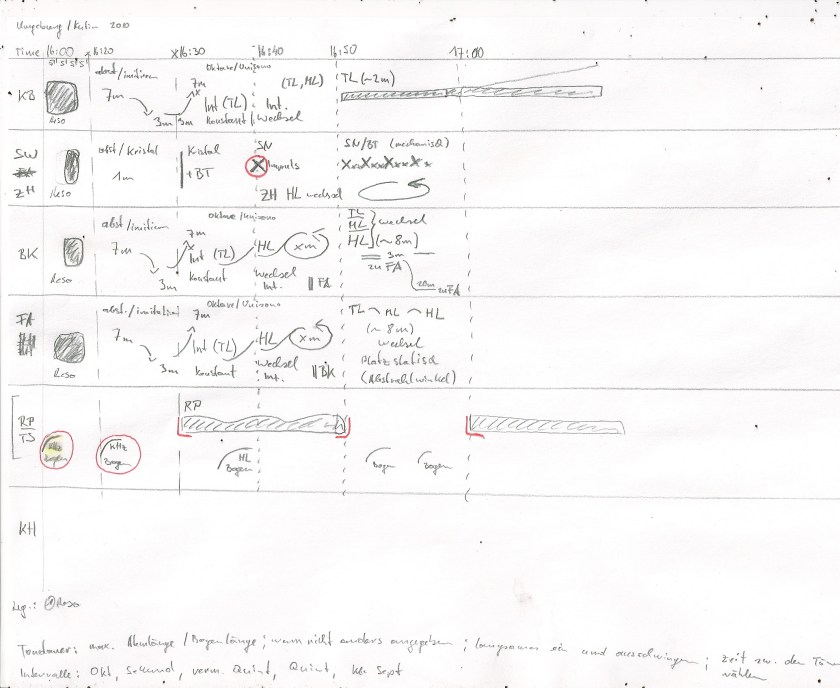 Umgebung / Kulim 2010
Time 16:00 16:20 x16:30 16:40 16:50 17:00
5' 5' 5' 5'
KB
Reso
abst/imitieren
7m
3m
Oktave/Unisono
7m
3m
Int (TL)
Konstant/Wechsel
(TL, HL)
Int.
TL (~2m)
SW
ZH
Reso
abst/Kristal
1m
Kristal
+BT
SN
X Impuls
ZH HL wechsel
SN/BT (mechanisch)
XxxXxxXxXx
BK
Reso
abst/imitieren
7m
3m
Oktave/Unisono
7m
x
Int (TL)
Konstant
HL
xm
Wechsel
Int.
|| FA
TL
ML
HL
wechsel
(~8m)
3m
zu FA
20m
zu FA
FA
Reso
abst./imitation
7m
3m
Oktave/Unisono
7m
Int (TL)
Konstant
HL
xm
Wechsel
Int.
|| BK
TL ML HL
(~8m)
wechsel
Platzstatisch
(Abstrahlwinkel)
RP
TS
KHz
Bogen
KHz
Bogen
RP
HL
Bogen
Bogen
Bogen
KH
Leg.: Reso
Tondauer: max. Atemlänge/Bogenlänge; wenn nicht anders angegeben; langsames ein und ausschwingen; Zeit zw. den Tönen
wählen
Intervalle: Okt, Sekund, verm. Quint, Quint, kl. Sept